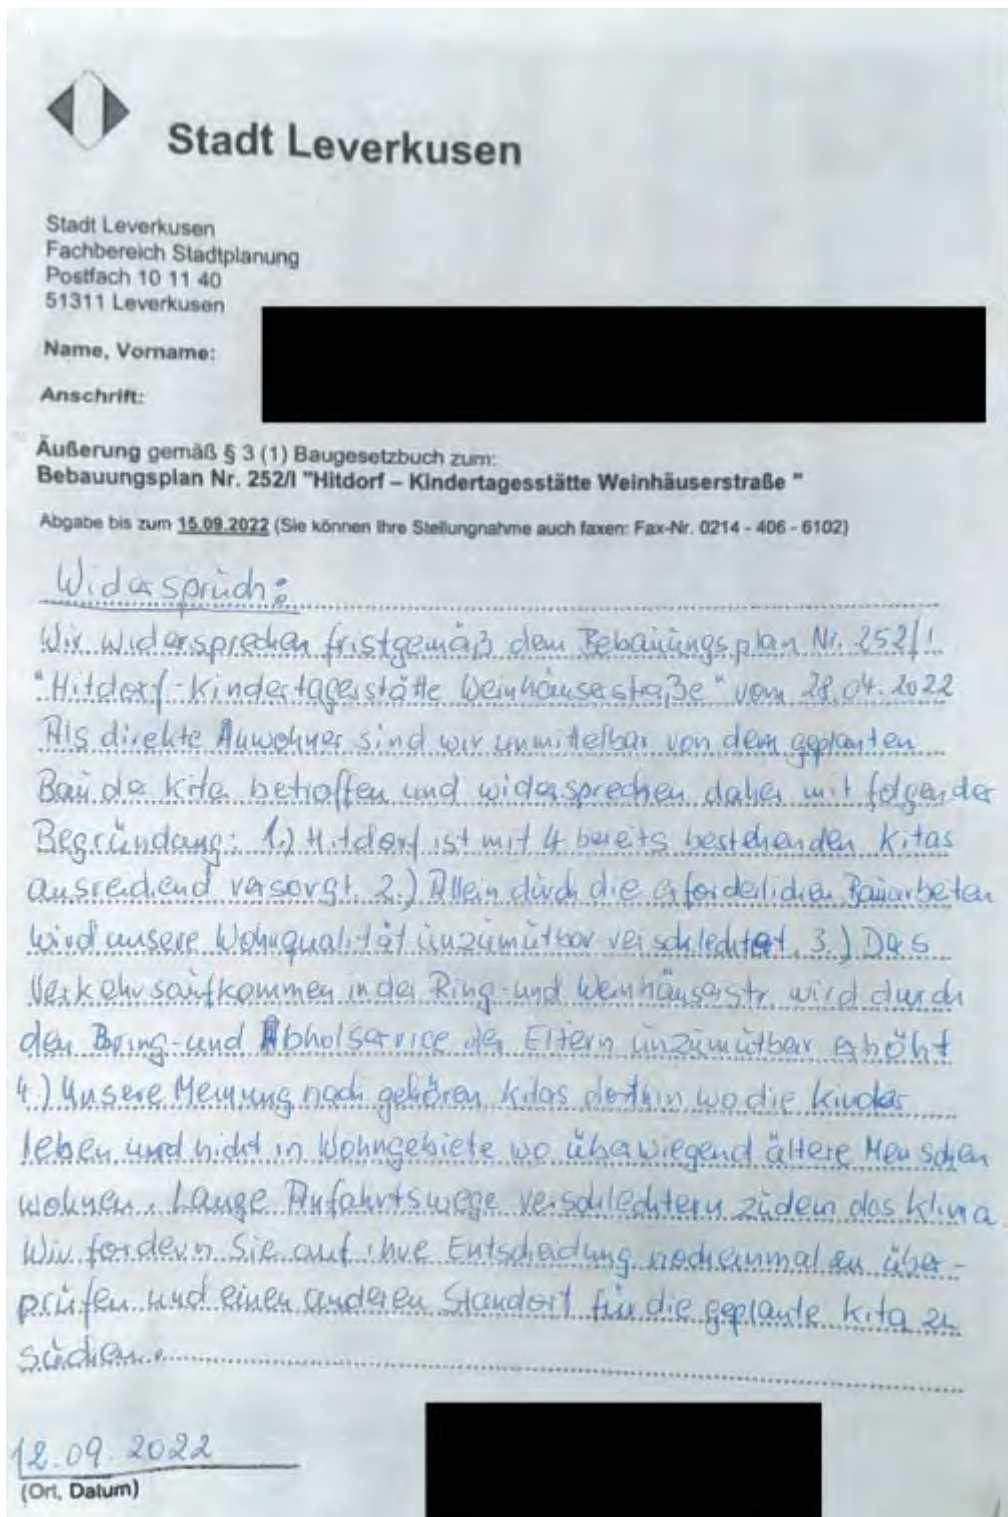 Stadt Leverkusen
Stadt Leverkusen
Fachbereich Stadtplanung
Postfach 10 11 40
51311 Leverkusen
Name, Vorname:
Anschrift:
Äußerung gemäß § 3 (1) Baugesetzbuch zum:
Bebauungsplan Nr. 252/I "Hitdorf – Kindertagesstätte Weinhäuserstraße "
Abgabe bis zum 15.09.2022 (Sie können Ihre Stellungnahme auch faxen: Fax-Nr. 0214 - 406 - 6102)
Widerspruch:
Wir widersprechen fristgemäß dem Bebauungsplan Nr. 252/I
"Hitdorf-Kindertagesstätte Weinhäuserstraße" vom 28.04.2022
Als direkte Anwohner sind wir unmittelbar von dem geplanten
Bau der Kita betroffen und widersprechen daher mit folgender
Begründung: 1.) Hitdorf ist mit 4 bereits bestehenden Kitas
ausreichend versorgt. 2.) Allein durch die erforderlichen Bauarbeiten
wird unsere Wohnqualität unzumutbar verschlechtert. 3.) Das
Verkehrsaufkommen in der Ring- und Weinhäuserstr. wird durch
den Bring- und Abholservice der Eltern unzumutbar erhöht
4.) Unsere Meinung nach gehören Kitas dorthin wo die Kinder
leben und nicht in Wohngebiete wo überwiegend ältere Menschen
wohnen. Lange Anfahrtswege verschlechtern zudem das Klima
Wir fordern Sie auf ihre Entscheidung nocheinmal zu über-
prüfen und einen anderen Standort für die geplante Kita zu
suchen.
12.09.2022
(Ort, Datum)